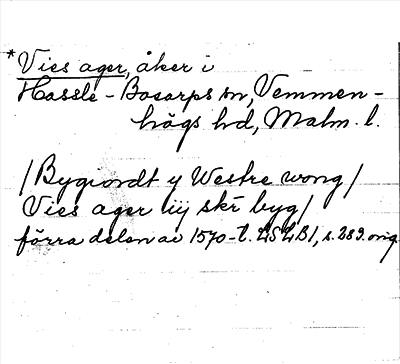 *Vies ager, åker i
Hassle-Bosarps sn, Vemmen-
högs hd, Malm. l.
/Bygiordt y Westre wong/
Vies ager iij skr byg/
förra delen av 1570-t. LSLB1, s. 289. orig.